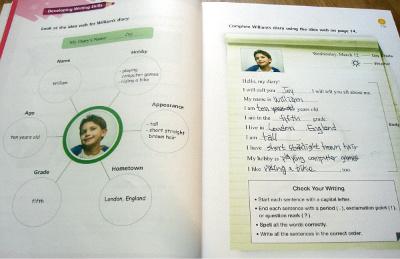 Developing Writing Skills
Look at the idea web for William's diary.
My Diary's Name: Joy
Name
William
Hobby
- playing
computer games
- riding a bike
Age
ten years old
Appearance
- tall
- short straight
brown hair
Grade
fifth
Hometown
London, England
Complete William's diary using the idea web on page 14.
Wednesday, March 12
Weather
Hello, my diary!
I will call you Joy. I will tell you all about me.
My name is William
I am ten years old
I am in the fifth grade
I live in London England
I am tall
I have short straight brown hair
My hobby is playing computer games
I like riding a bike too.
Check Your Writing
• Start each sentence with a capital letter.
• End each sentence with a period (.), exclamation point (!),
or question mark (?).
• Spell all the words correctly.
• Write all the sentences in the correct order.